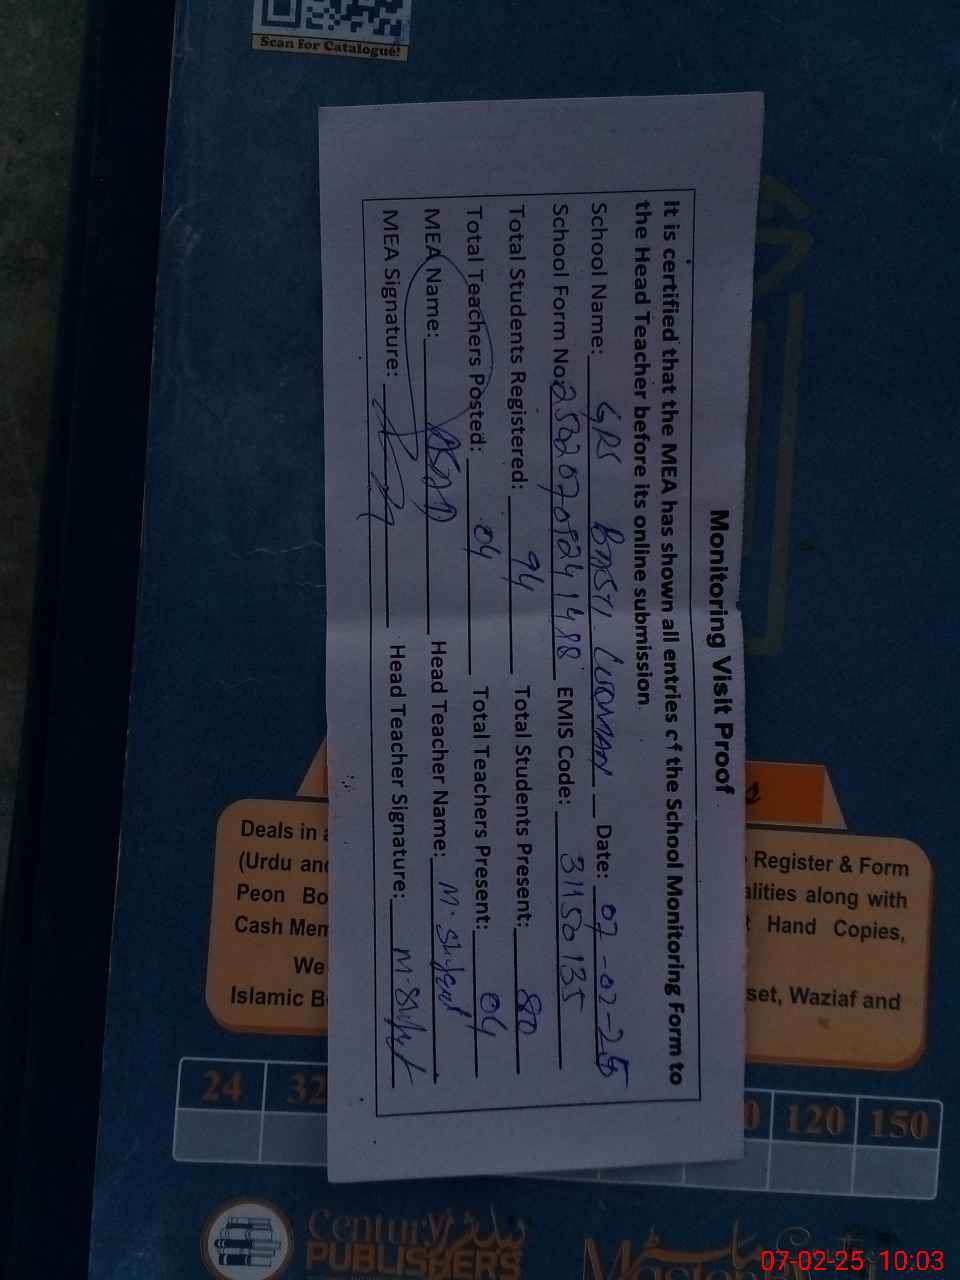 Scan for Catalogue!
Monitoring Visit Proof
It is certified that the MEA has shown all entries of the School Monitoring Form to
the Head Teacher before its online submission.
School Name: GPS BASTI Date: 07-02-25
School Form No: EMIS Code: 31150135
Total Students Registered: 94 Total Students Present: 80
Total Teachers Posted: 04 Total Teachers Present: 04
MEA Name: ASAD Head Teacher Name: M.
MEA Signature: Head Teacher Signature: M.
Deals in
(Urdu and
Peon
Cash
We
Islamic
Register & Form
along with
Hand Copies,
Waziaf and
24 32 120 150
Century
PUBLISHERS
07-02-25 10:03